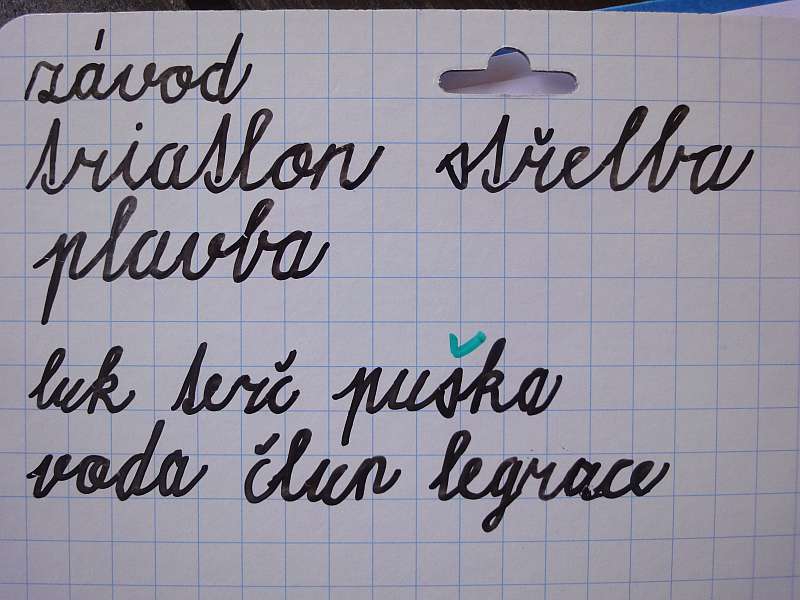 závod
triatlon střelba
plavba
luk terč puška
voda člun legrace